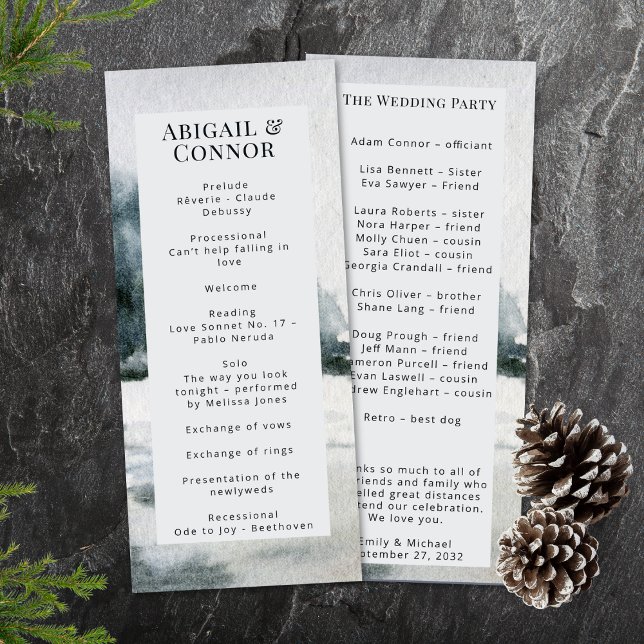 ABIGAIL &
CONNOR
Prelude
Rêverie - Claude
Debussy
Processional
Can't help falling in
love
Welcome
Reading
Love Sonnet No. 17 –
Pablo Neruda
Solo
The way you look
tonight – performed
by Melissa Jones
Exchange of vows
Exchange of rings
Presentation of the
newlyweds
Recessional
Ode to Joy - Beethoven
THE WEDDING PARTY
Adam Connor – officiant
Lisa Bennett – Sister
Eva Sawyer – Friend
Laura Roberts – sister
Nora Harper – friend
Molly Chuen – cousin
Sara Eliot – cousin
Georgia Crandall – friend
Chris Oliver – brother
Shane Lang – friend
Doug Prough – friend
Jeff Mann – friend
ameron Purcell – friend
Evan Laswell – cousin
drew Englehart – cousin
Retro – best dog
nks so much to all of
friends and family who
elled great distances
tend our celebration.
We love you.
Emily & Michael
ptember 27, 2032